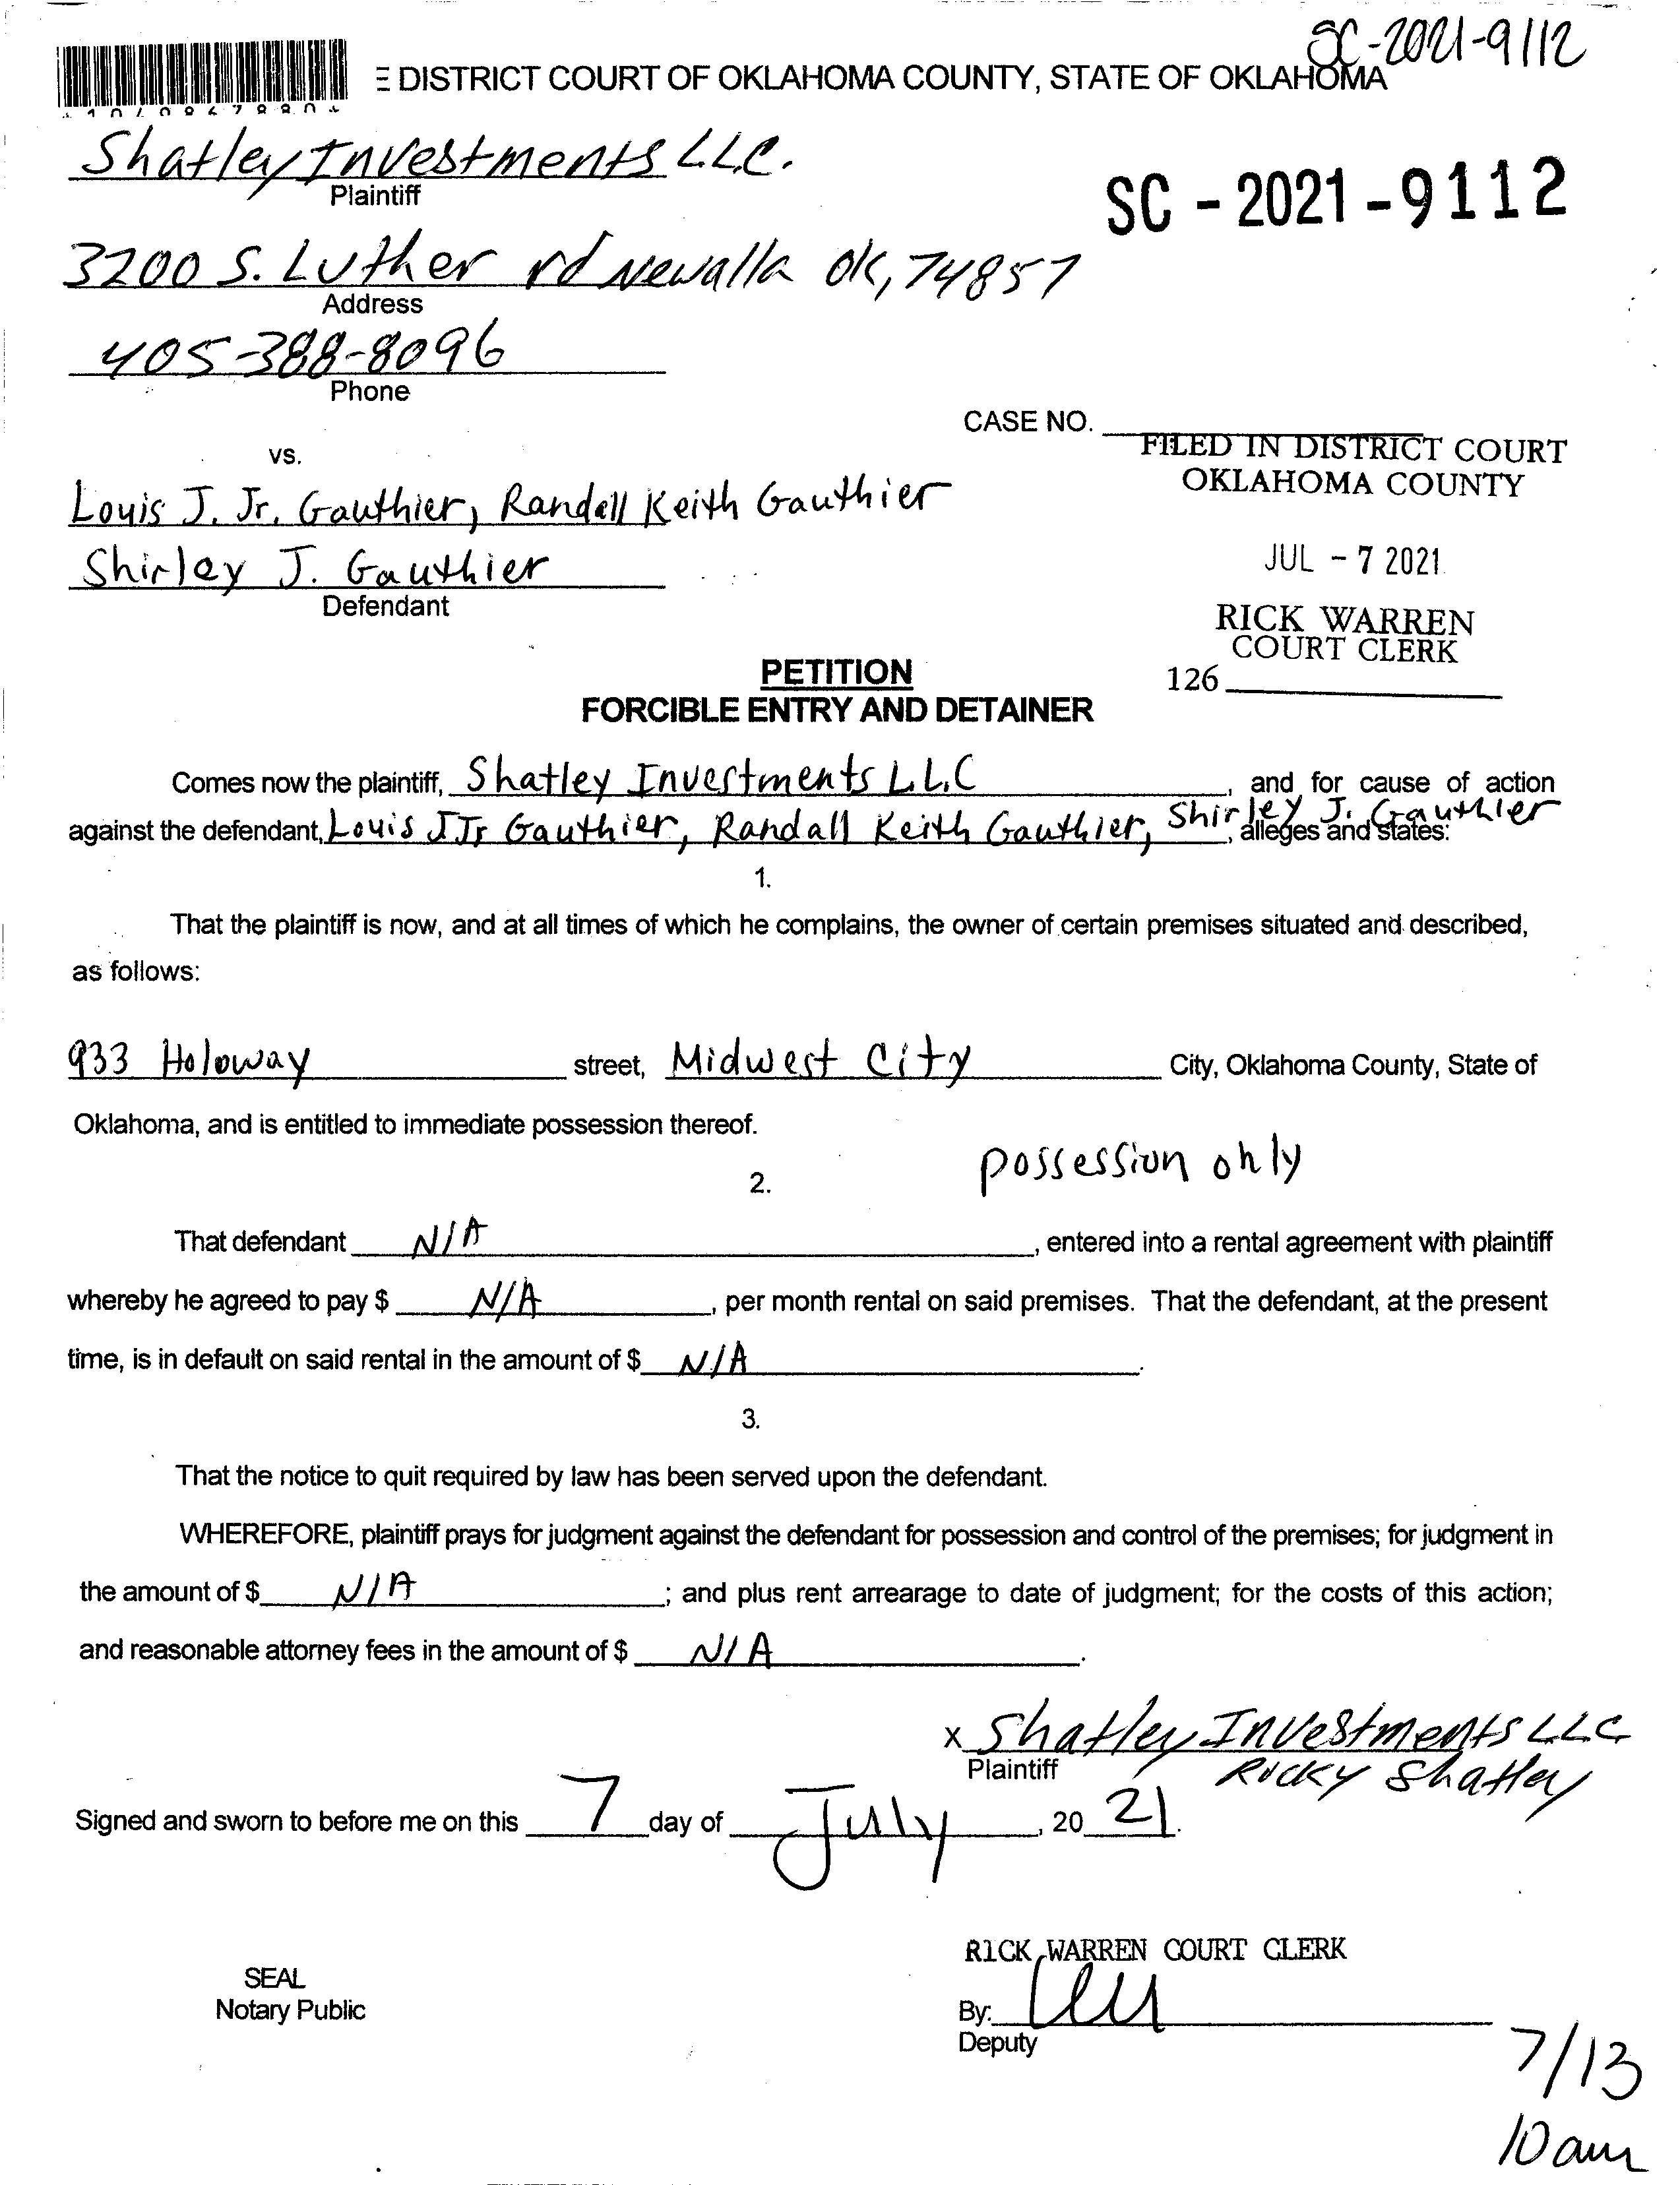 SC-2021-9112
E DISTRICT COURT OF OKLAHOMA COUNTY, STATE OF OKLAHOMA
Shatley Investments LLC.
Plaintiff
SC - 2021 - 9112
3200 S. Luther rd Newalla OK, 74857
Address
405-388-8096
Phone
CASE NO.
FILED IN DISTRICT COURT
OKLAHOMA COUNTY
vs.
Louis J. Jr. Gauthier, Randall Keith Gauthier
Shirley J. Gauthier
Defendant
JUL - 7 2021
RICK WARREN
COURT CLERK
126
PETITION
FORCIBLE ENTRY AND DETAINER
Comes now the plaintiff, Shatley Investments LLC, and for cause of action
against the defendant, Louis J Jr Gauthier, Randall Keith Gauthier, Shirley J. Gauthier, alleges and states:
1.
That the plaintiff is now, and at all times of which he complains, the owner of certain premises situated and described,
as follows:
933 Holoway street, Midwest City City, Oklahoma County, State of
Oklahoma, and is entitled to immediate possession thereof.
possession only
2.
That defendant N/A, entered into a rental agreement with plaintiff
whereby he agreed to pay $ N/A, per month rental on said premises. That the defendant, at the present
time, is in default on said rental in the amount of $ N/A.
3.
That the notice to quit required by law has been served upon the defendant.
WHEREFORE, plaintiff prays for judgment against the defendant for possession and control of the premises; for judgment in
the amount of $ N/A; and plus rent arrearage to date of judgment; for the costs of this action;
and reasonable attorney fees in the amount of $ N/A.
x Shatley Investments LLC
Plaintiff Ricky Shatley
Signed and sworn to before me on this 7 day of July, 20 21.
RICK WARREN COURT CLERK
SEAL
Notary Public
By:
Deputy
7/13
10am